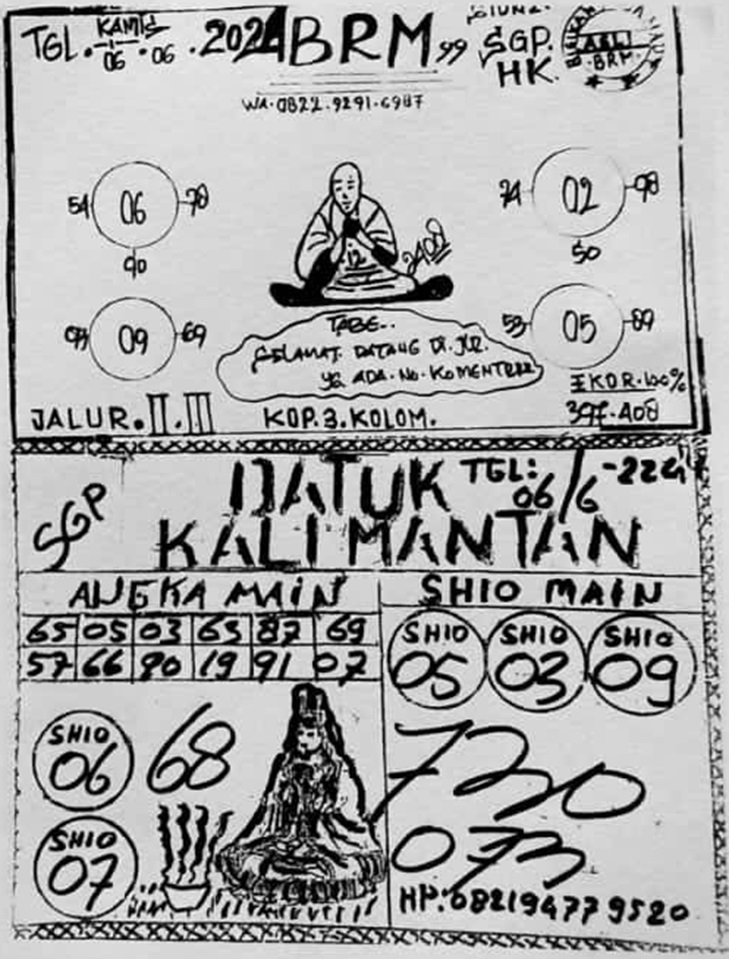 TGL. KAMIS 06 . 06 . 2024
ABRM 99
SGP. HK.
ASLI BRM
WA. 0822.9291.6987
54 06 78
90
74 02 98
50
2408
12
09 69
53 05 89
TABE..
SELAMAT. DATANG DI. JLR.
YG ADA. NO. KOMENTAR
EKOR. 100%
397. A08
JALUR. II. III
KOP. 3. KOLOM.
SGP
DATUK
KALIMANTAN
TGL: 06/6 -224
ANGKA MAIN
65 05 03 63 87 69
57 66 80 19 91 07
SHIO MAIN
SHIO 05
SHIO 03
SHIO 09
SHIO 06
68
SHIO 07
730
073
HP: 082194779520